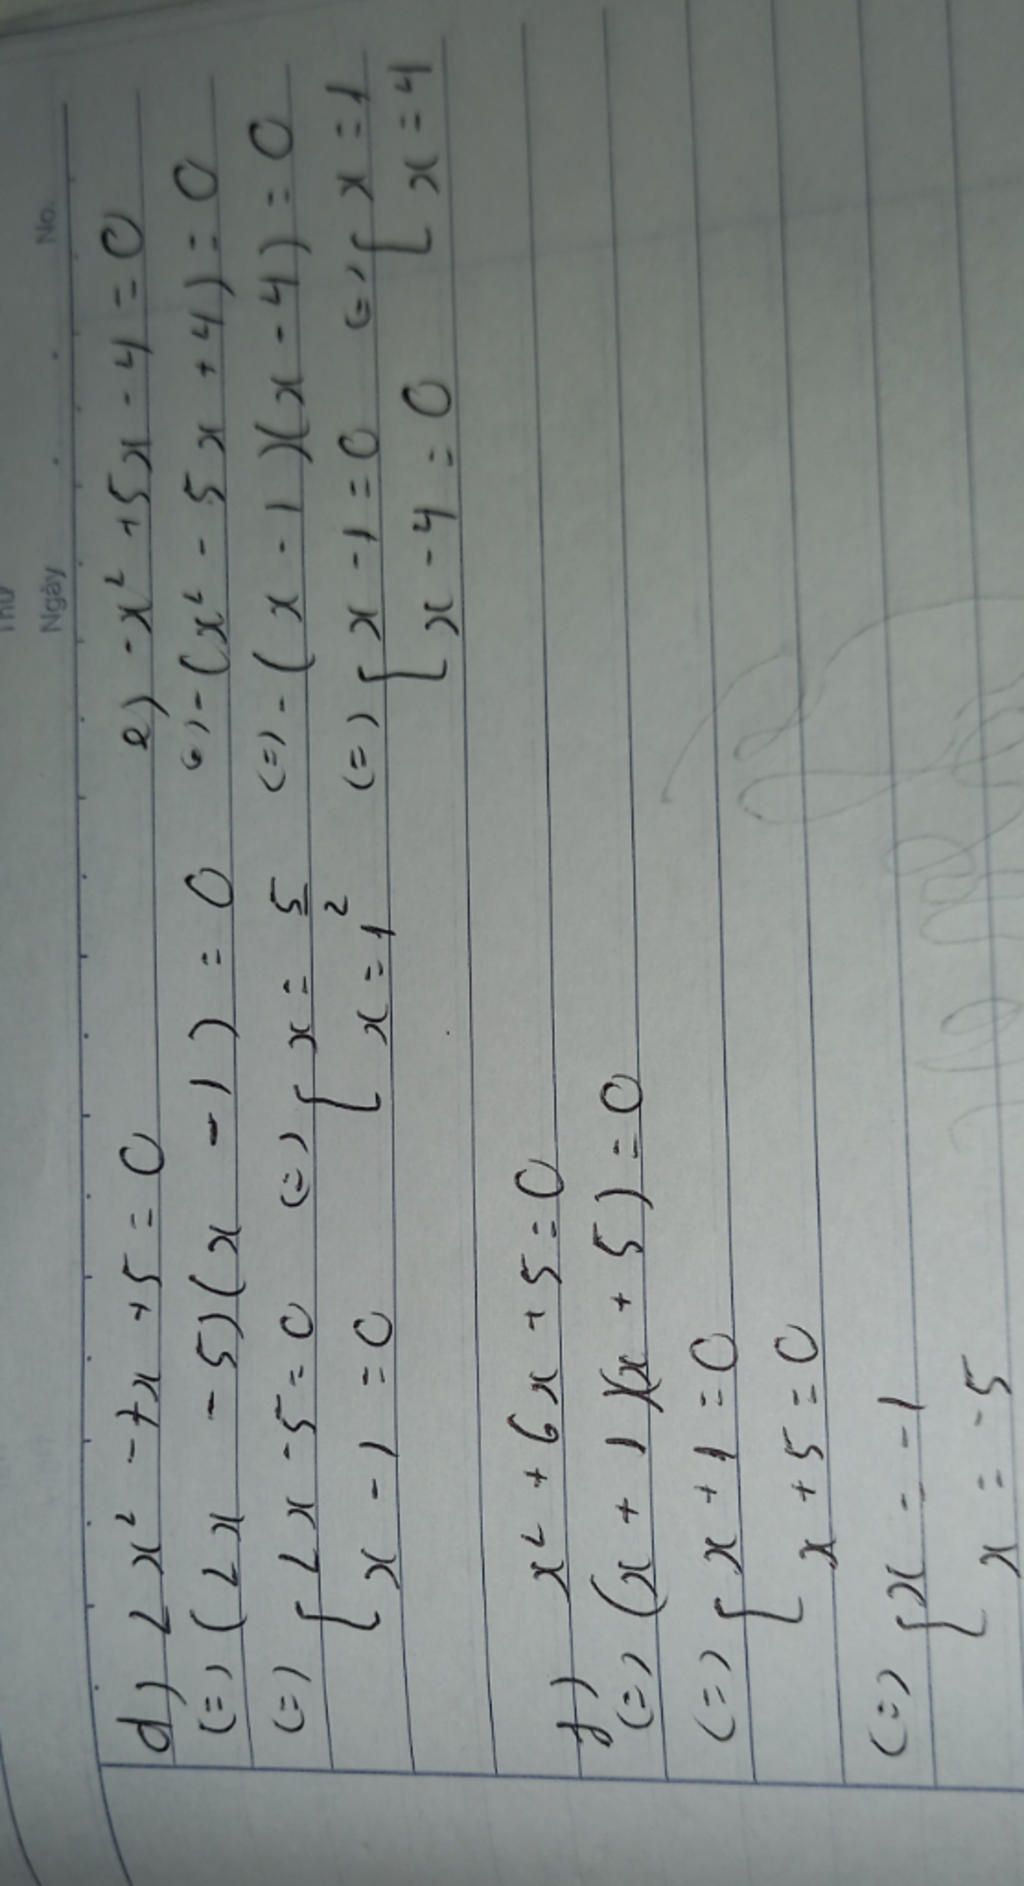 Thứ
Ngày
No.
d) 2x² - 7x + 5 = 0
(=) (2x - 5)(x - 1) = 0
(=) [ 2x - 5 = 0 (=) [ x = 5/2
x - 1 = 0 x = 1
e) -x² + 5x - 4 = 0
(=) -(x² - 5x + 4) = 0
(=) -(x - 1)(x - 4) = 0
(=) [ x - 1 = 0 (=) [ x = 1
x - 4 = 0 x = 4
f) x² + 6x + 5 = 0
(=) (x + 1)(x + 5) = 0
(=) [ x + 1 = 0
x + 5 = 0
(=) [ x = -1
x = -5